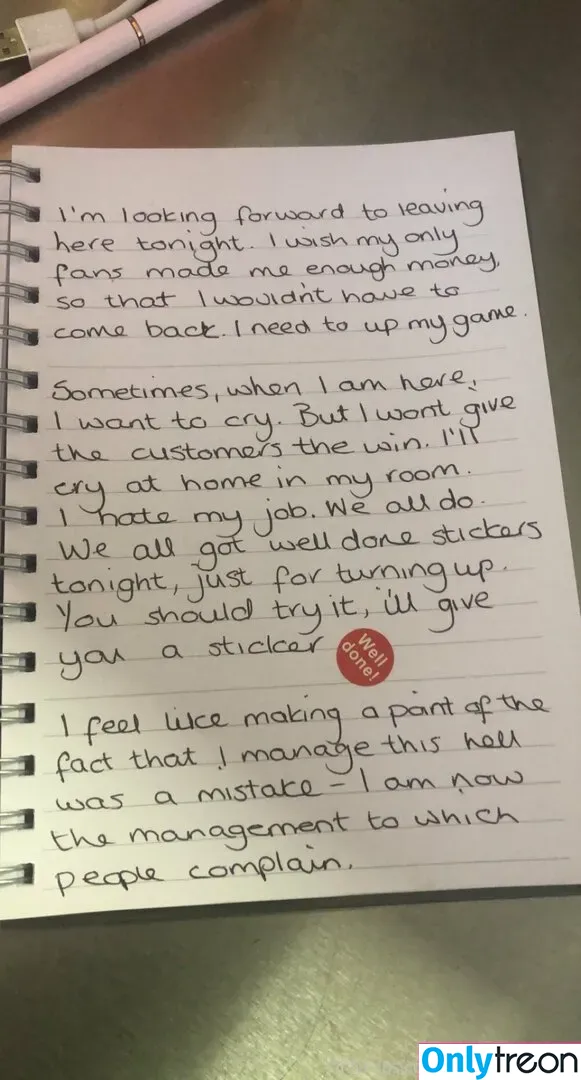 I'm looking forward to leaving
here tonight. I wish my only
fans made me enough money,
so that I wouldn't have to
come back. I need to up my game.
Sometimes, when I am here,
I want to cry. But I wont give
the customers the win. I'll
cry at home in my room.
I hate my job. We all do.
We all got well done stickers
tonight, just for turning up.
You should try it, i'll give
you a sticker
Well
done!
I feel like making a point of the
fact that I manage this hell
was a mistake - I am now
the management to which
people complain.
Onlytreon